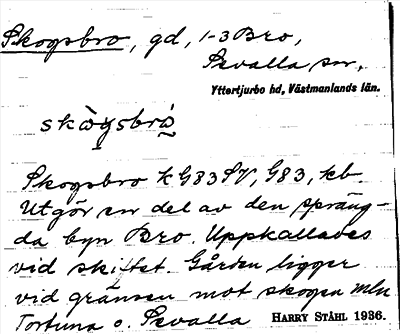 Skogsbro, gd, 1-3 Bro,
Svalla sn,
Yttertjurbo hd, Västmanlands län.
skògsbrò
Skogsbro k G83SV, G83, kb.
Utgör en del av den spräng-
da byn Bro. Uppkallades
vid skiftet. Gården ligger
vid gränsen mot skogen mln
Tortuna o. Svalla HARRY STÅHL 1936.